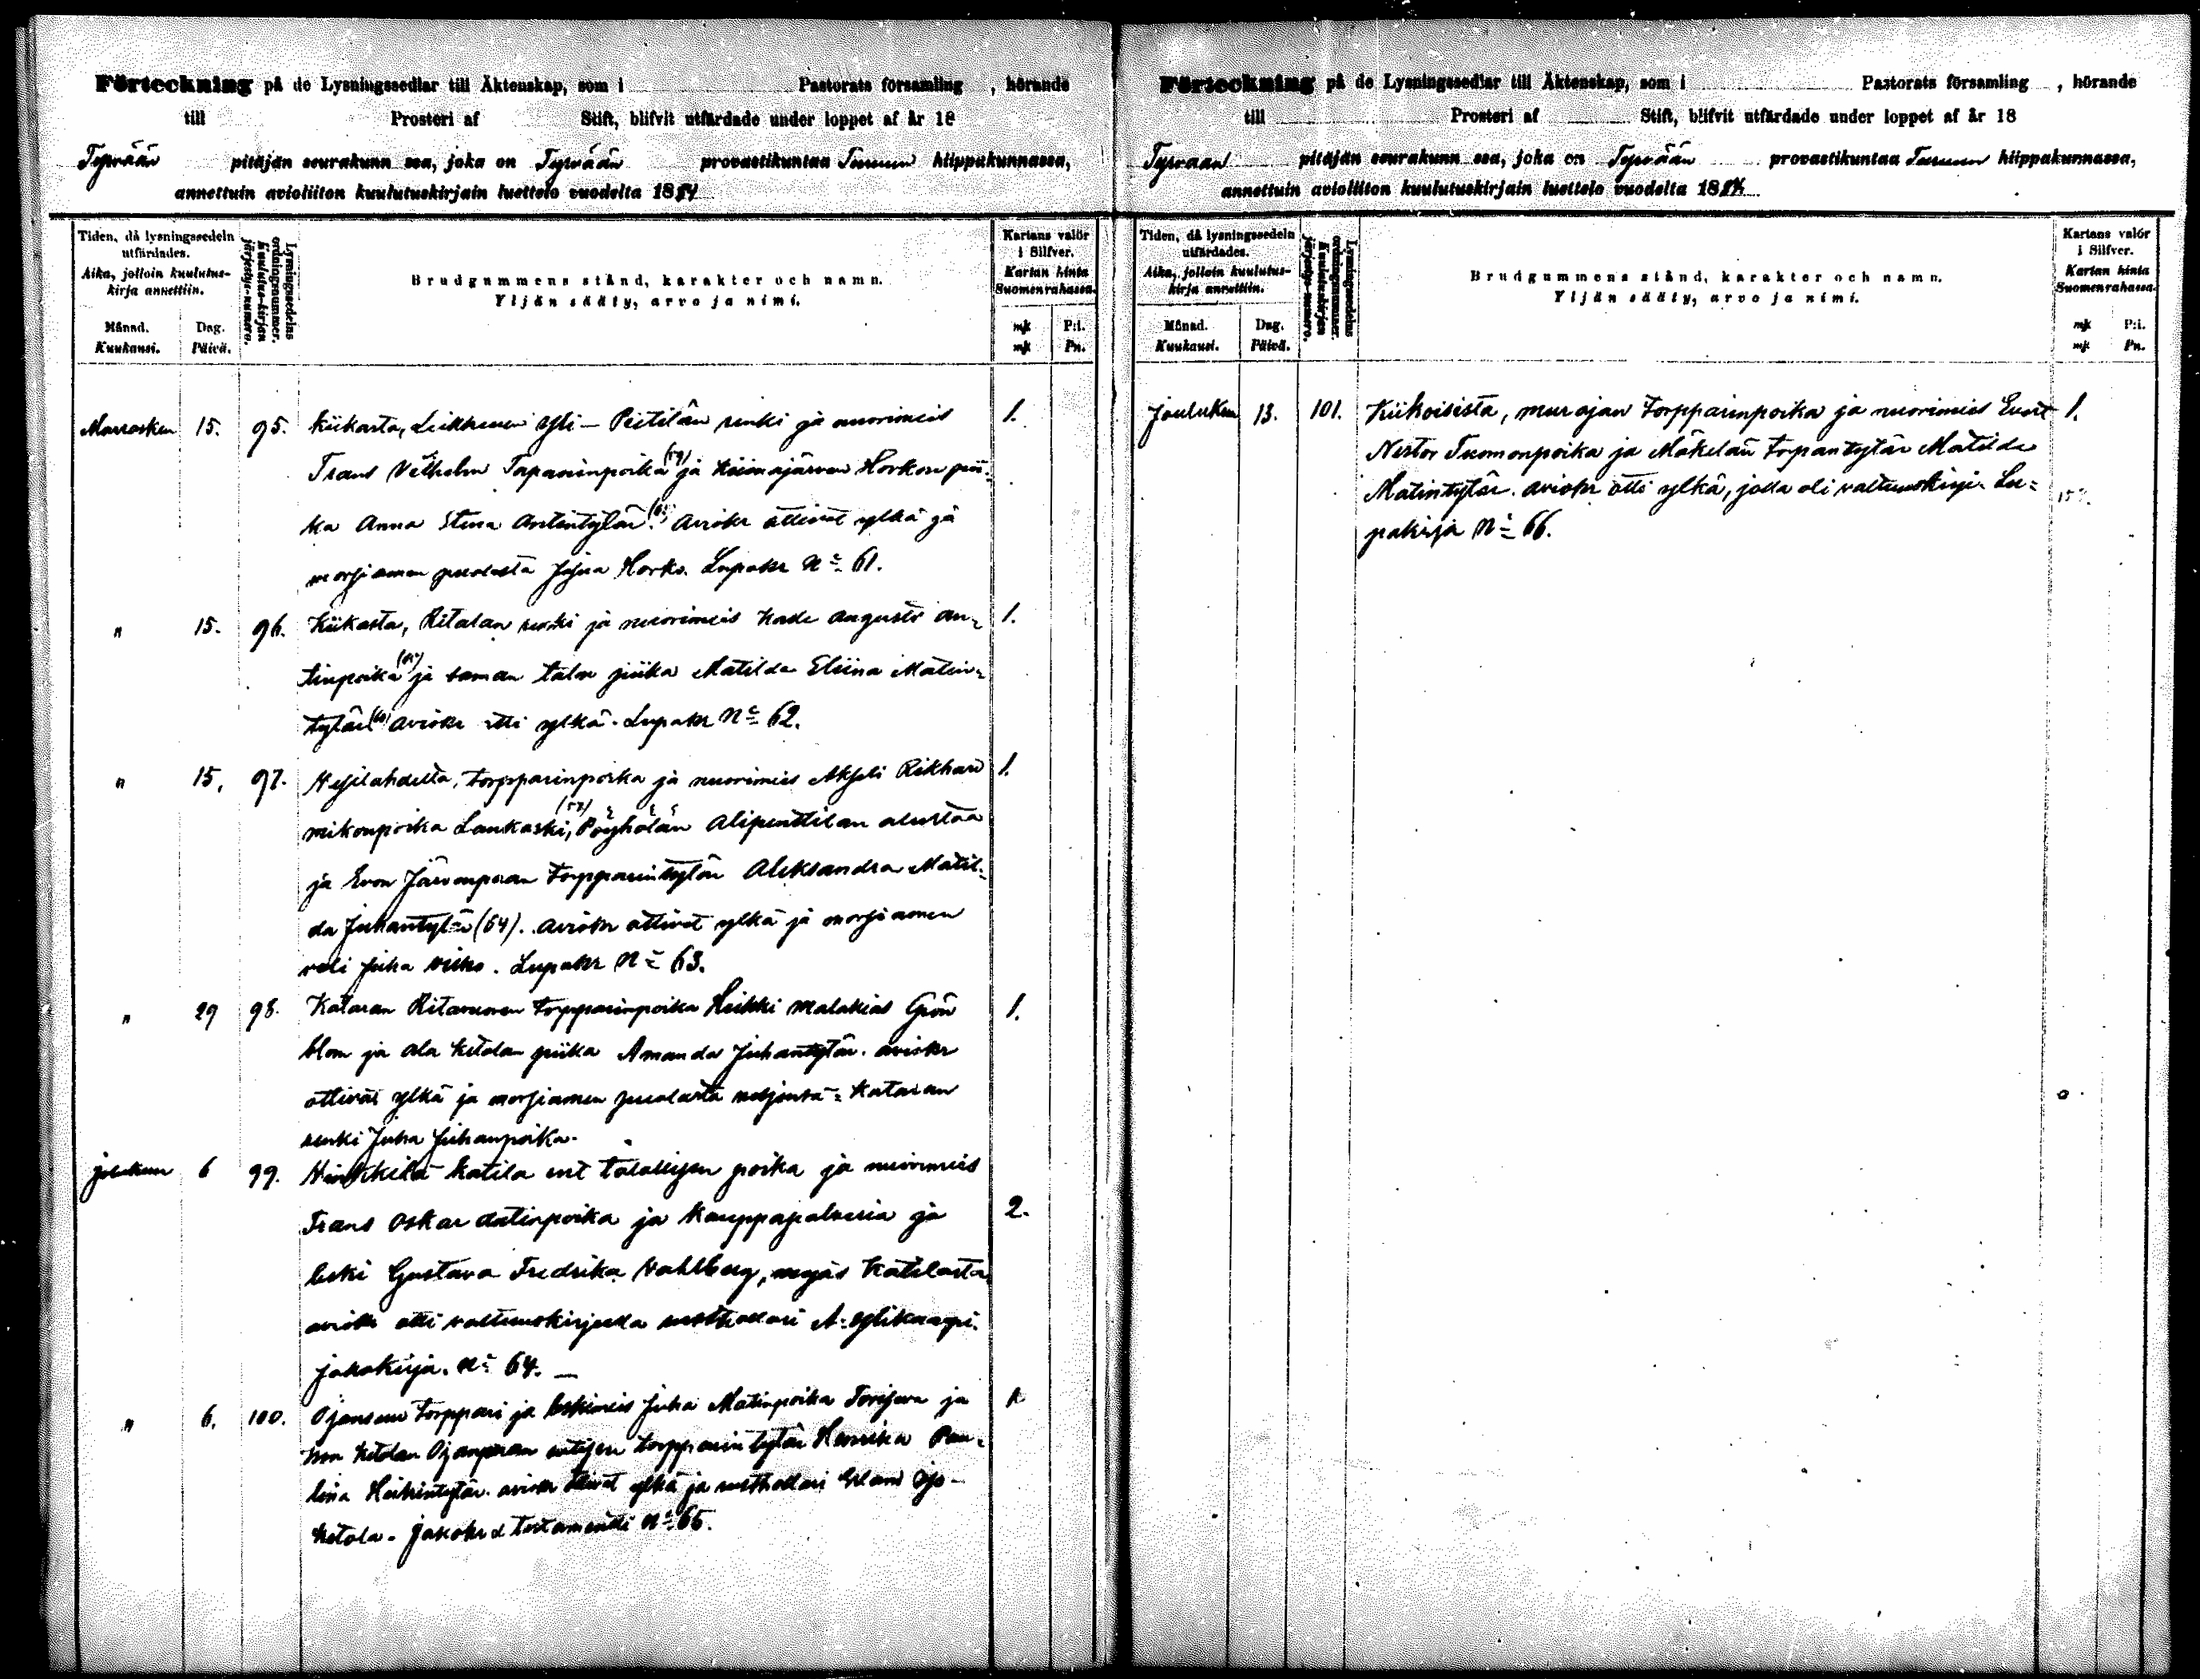 Förteckning på de Lysningssedlar till Äktenskap, som i Pastorats församling , hörande
till Prosteri af Stift, blifvit utfärdade under loppet af år 18
Tyrvään pitäjän seurakunn ssa, joka on Tyrvään provastikuntaa Turun hiippakunnassa,
annettuin avioliiton kuulutuskirjain luettelo vuodelta 1884
Tiden, då lysningssedeln utfärdades.
Aika, jolloin kuulutus-kirja annettiin.
Månad. Dag.
Kuukausi. Päivä.
Lysningssedelns ordningsnummer.
Kuulutus-kirjan järjestys-numero.
Brudgummens stånd, karakter och namn.
Yljän sääty, arvo ja nimi.
Kartans valör i Silfver.
Kartan hinta Suomen rahassa.
mk P:i.
mk Pn.
Marrasken 15. 95. Kiikasta, Leikkuun Yli-Peitilän renki ja nuorimeis 1.
Frans Vilhelm Taparinpoika ja Kiimajärven Horkon pii-
ka Anna Stina Antintytär. Aviokr ottivat ylkä ja
morsiamen puolesta Juha Horko. Lupakr No 61.
" 15. 96. Kiikasta, Ritalan renki ja nuorimeis Kalle Augusti An- 1.
tinpoika ja saman talon piika Matilda Eliina Matin-
tytär aviokr otti ylkä. Lupakr No 62.
" 15. 97. Vesilahdelta, torpparinpoika ja nuorimeis Akseli Rikhard 1.
mikonpoika Laukaski, Pöyhölän Alipenttilän alustaa
ja Evon Järvenpään torpparintytär Aleksandra Matil-
da Juhantytär (64). aviokr ottivat ylkä ja morsiamen
veli Juha Vilho. Lupakr No 63.
" 29 98. Kataran Ritavuoren torpparinpoika Heikki Malakias Grön 1.
blom ja Ala Ketolan piika Amanda Juhantytär. aviokr
ottivat ylkä ja morsiamen puolasta Kataran
renki Juha Juhanpoika.
joulukuun 6 99. Katila ent talollisen poika ja nuorimeis
Frans Oskar Antinpoika ja kauppapalvelia ja 2.
leski Gustava Fredrika Vahlberg, myös Katilasta
aviokr otti valtuuskirjalla rusthollari A.
jakokirja. No 64. —
" 6. 100. Ojansuu torppari ja leskimeis Juha Matinpoika ja
Ketolan Ojanperän entisen torpparin tytär Henrika Pau-
lina Heikintytär. aviokr ottivat ylkä ja rusthollari Erland Ojo-
ketola. Jakokr & testamentti No 65.
Förteckning på de Lysningssedlar till Äktenskap, som i Pastorats församling , hörande
till Prosteri af Stift, blifvit utfärdade under loppet af år 18
Tyrvään pitäjän seurakunn ssa, joka on Tyrvään provastikuntaa Turun hiippakunnassa,
annettuin avioliiton kuulutuskirjain luettelo vuodelta 1884
Tiden, då lysningssedeln utfärdades.
Aika, jolloin kuulutus-kirja annettiin.
Månad. Dag.
Kuukausi. Päivä.
Lysningssedelns ordningsnummer.
Kuulutuskirjan järjestys-numero.
Brudgummens stånd, karakter och namn.
Yljän sääty, arvo ja nimi.
Kartans valör i Silfver.
Kartan hinta Suomen rahassa.
mk P:i.
mk Pn.
Joulukuu 13. 101. Kiikoisista, torpparinpoika ja nuorimies Evert 1.
Nestor Tuomonpoika ja Mäkelän torpantytär Matilda
Matintytär. aviokr otti ylkä, jolla oli valtuuskirja. Lu-
pakirja No 66.